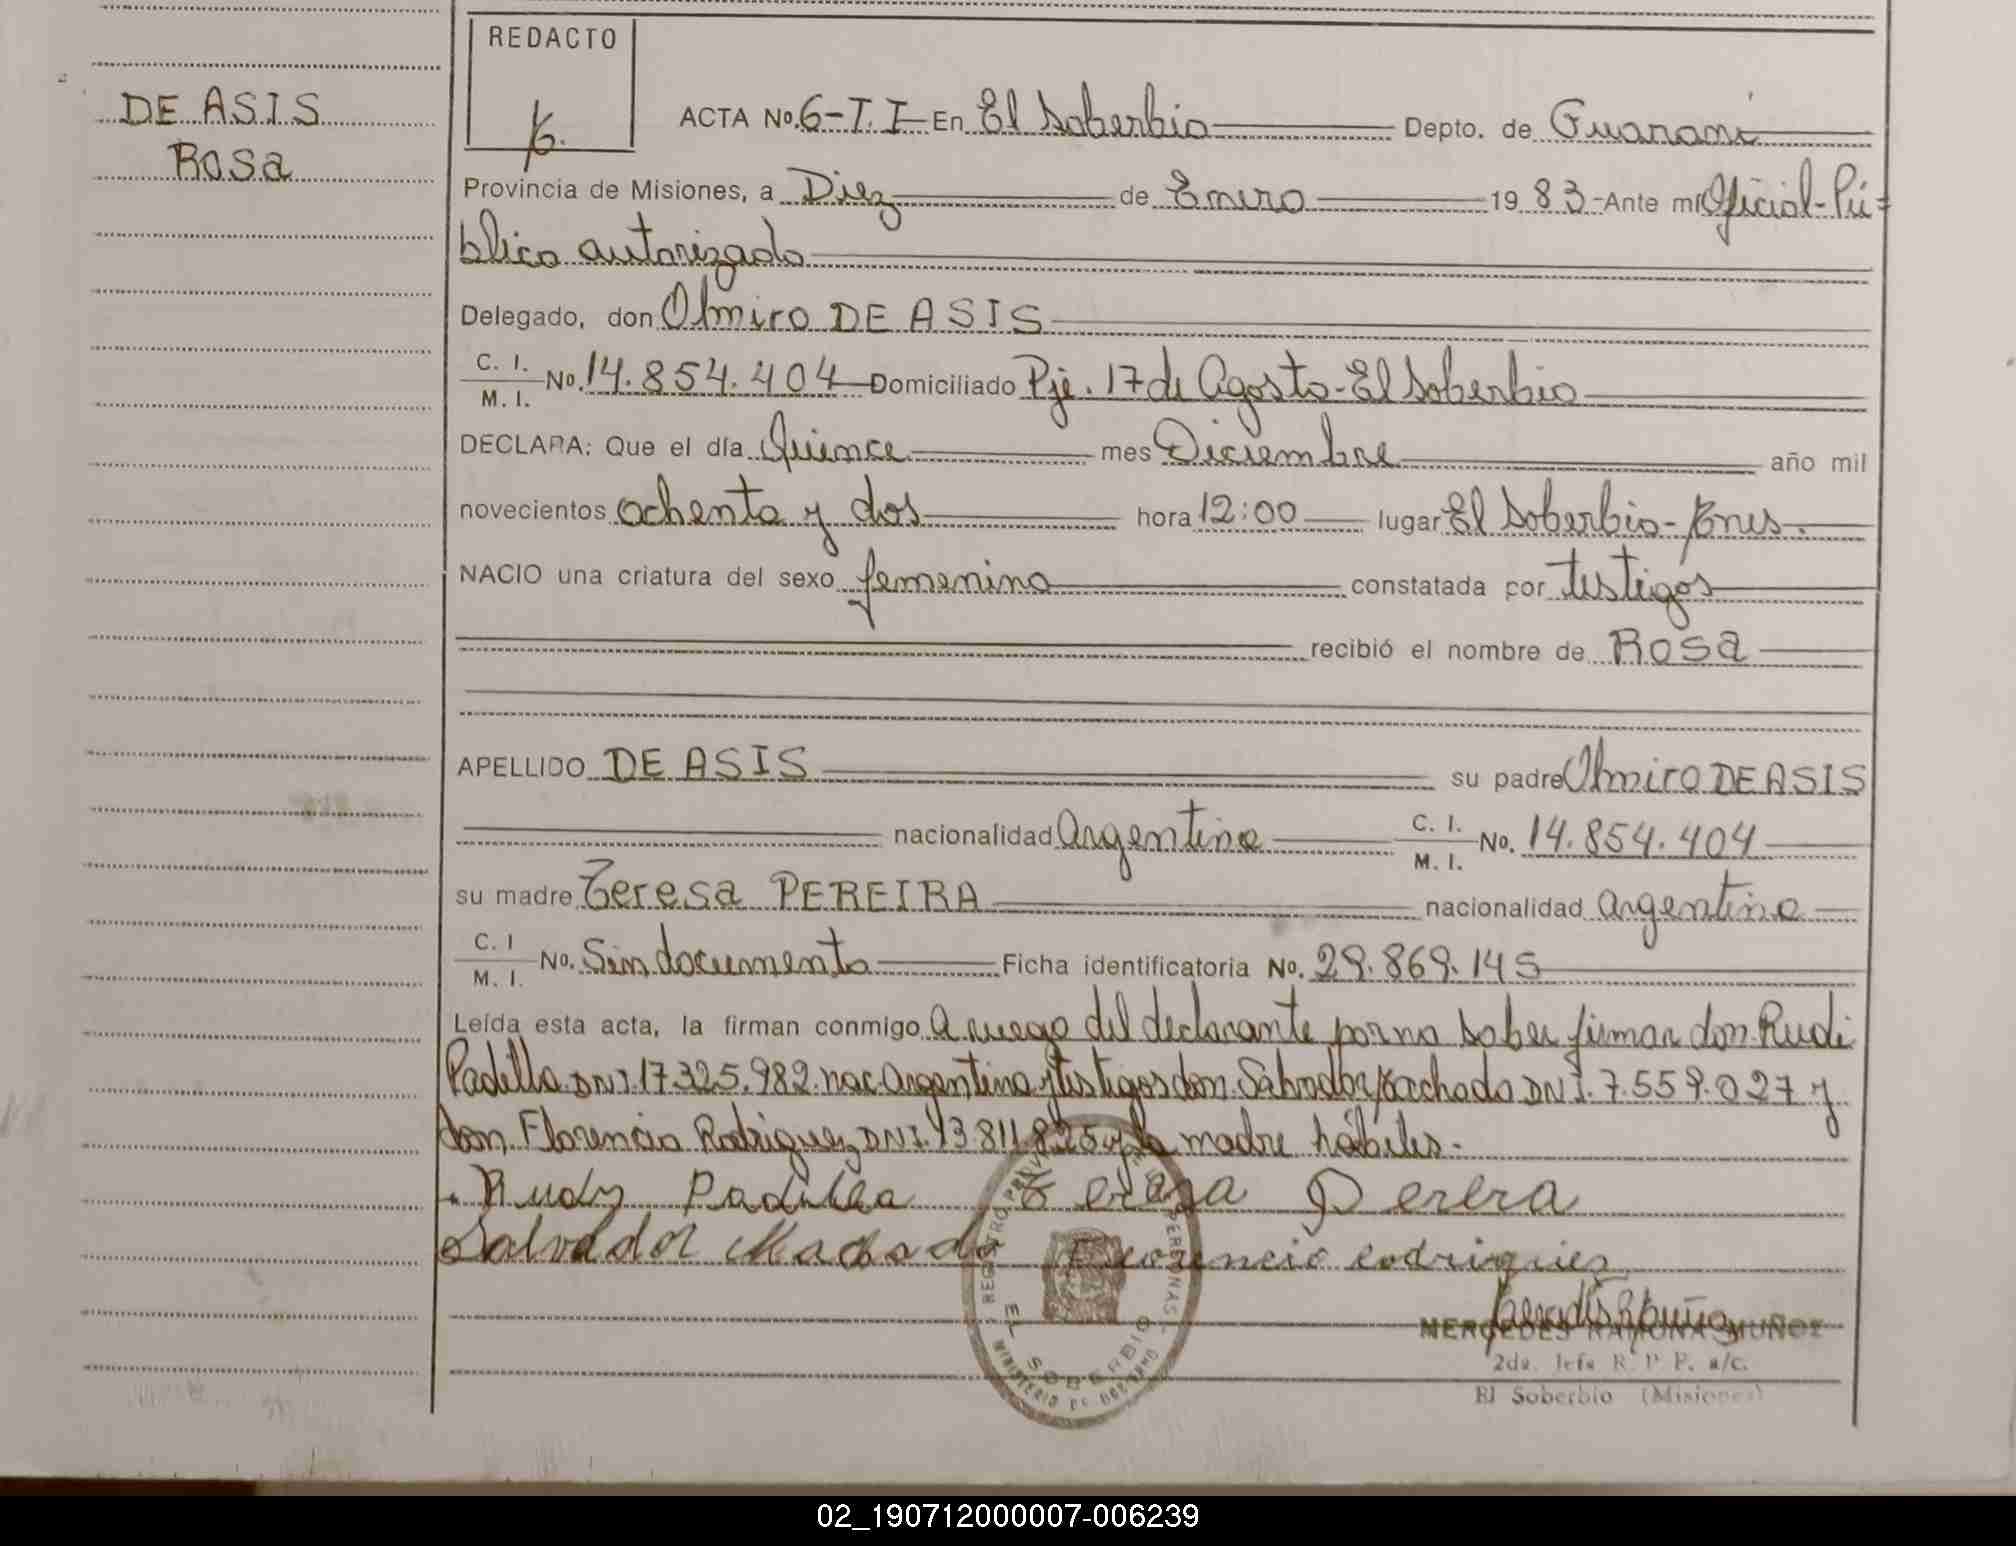 REDACTO
DE ASIS
Rosa
6.
ACTA No. 6-T.I- En El Soberbio Depto. de Guaraní
Provincia de Misiones, a Diez de Enero 19 83- Ante mi Oficial-Pú-
blico autorizado
Delegado, don Olmiro DE ASIS
C. I. / M. I. No. 14.854.404 Domiciliado Pje. 17 de Agosto-El Soberbio
DECLARA: Que el día Quince mes Diciembre año mil
novecientos ochenta y dos hora 12:00 lugar El Soberbio-
NACIO una criatura del sexo femenino constatada por testigos
recibió el nombre de Rosa
APELLIDO DE ASIS su padre Olmiro DE ASIS
nacionalidad Argentina C. I. / M. I. No. 14.854.404
su madre Teresa PEREIRA nacionalidad Argentina
C. I / M. I. No. Sin documento Ficha identificatoria No. 29.869.145
Leída esta acta, la firman conmigo A ruego del declarante por no saber firmar don Rudi
Padilla DNI. 17.325.982. nac. Argentina y testigos don Salvador Machado DNI. 7.559.027 y
don Florencio Rodriguez DNI. 13.811.825 y la madre hábiles.-
Rudy Padilla Teresa Perera
Salvador Machado Florencio rodriguez
MERCEDES RAMONA MUÑOZ
2da. Jefa R. P. P. a/c.
El Soberbio (Misiones)
REGISTRO PROVINCIAL DE LAS PERSONAS
EL SOBERBIO
MINISTERIO DE GOBIERNO
02_190712000007-006239